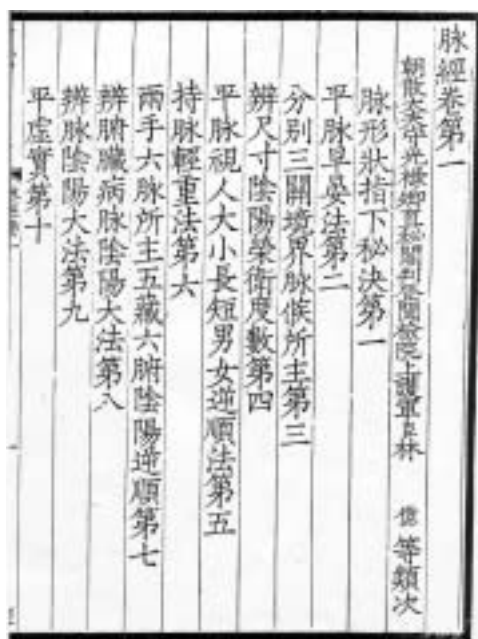 脉經卷第一
朝散大夫守光祿卿直秘閣判登聞檢院上護軍臣林 億 等類次
脉形狀指下秘決第一
平脉早晏法第二
分别三關境界脉候所主第三
辨尺寸陰陽榮衛度數第四
平脉視人大小長短男女逆順法第五
持脉輕重法第六
兩手六脉所主五藏六腑陰陽逆順第七
辨腑臟病脉陰陽大法第八
辨脉陰陽大法第九
平虛實第十